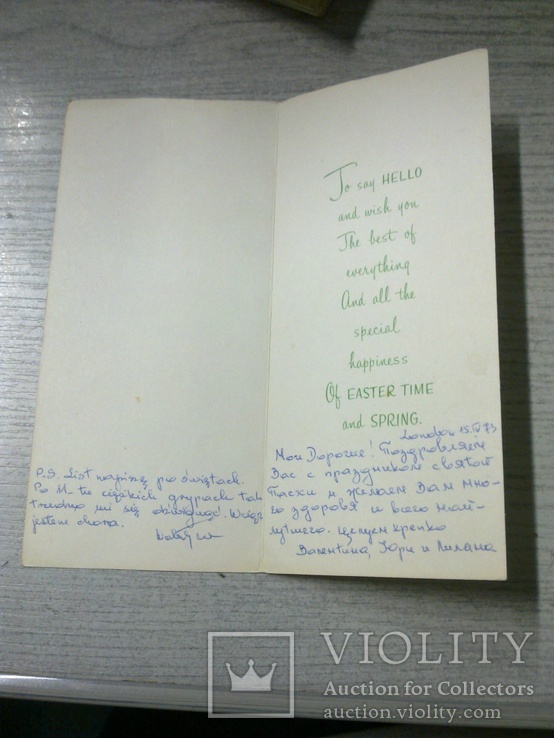 To say HELLO
and wish you
The best of
everything
And all the
special
happiness
Of EASTER TIME
and SPRING.
London 15.IV.73
Мои Дорогие! Поздровляем
Вас с праздником святой
Пасхи и желаем Вам мно-
го здоровя и всего най-
лутшего. Целуем крепко
Валентина, Юри и Милана
P.S. List napiszę po świętach.
Po 11-tu ciężkich grypach tak
trudno mi się dźwignąć. Wciąż
jestem chora.
VIOLITY
Auction for Collectors
auction.violity.com